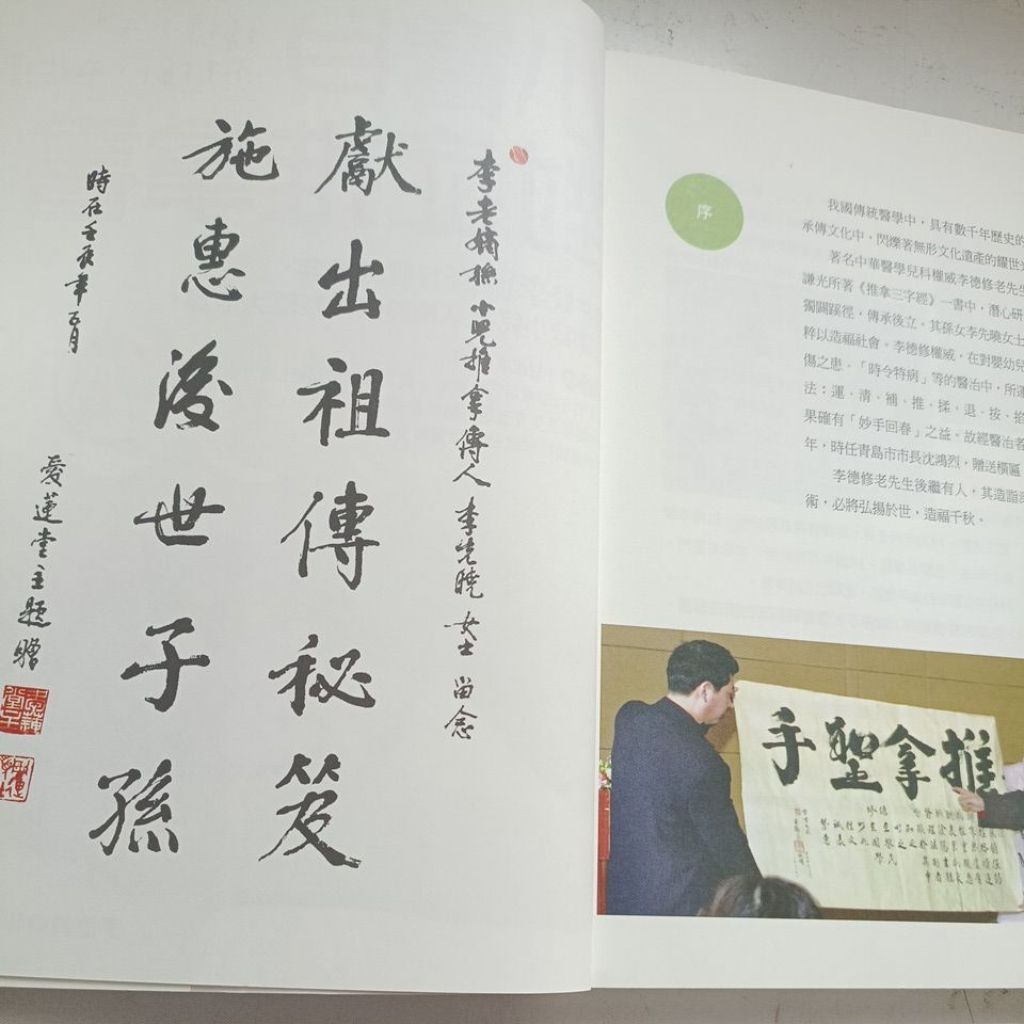 李老嫡孫 小兒推拿傳人 李先曉女士 留念
獻出祖傳秘笈
施惠後世子孫
時在壬辰年五月 愛蓮堂主題贈
序
我國傳統醫學中，具有數千年歷史的
承傳文化中，閃爍著無形文化遺產的耀世
著名中華醫學兒科權威李德修老先生
謙光所著《推拿三字經》一書中，潛心研
獨闢蹊徑，傳承後立。其孫女李先曉女士
粹以造福社會。李德修權威，在對嬰幼兒
傷之患，「時令特病」等的醫治中，所運
法：運、清、補、推、揉、退、按、掐
果確有「妙手回春」之益。故經醫治者
年，時任青島市市長沈鴻烈，贈送橫匾
李德修老先生後繼有人，其造詣
術，必將弘揚於世，造福千秋。
推拿聖手